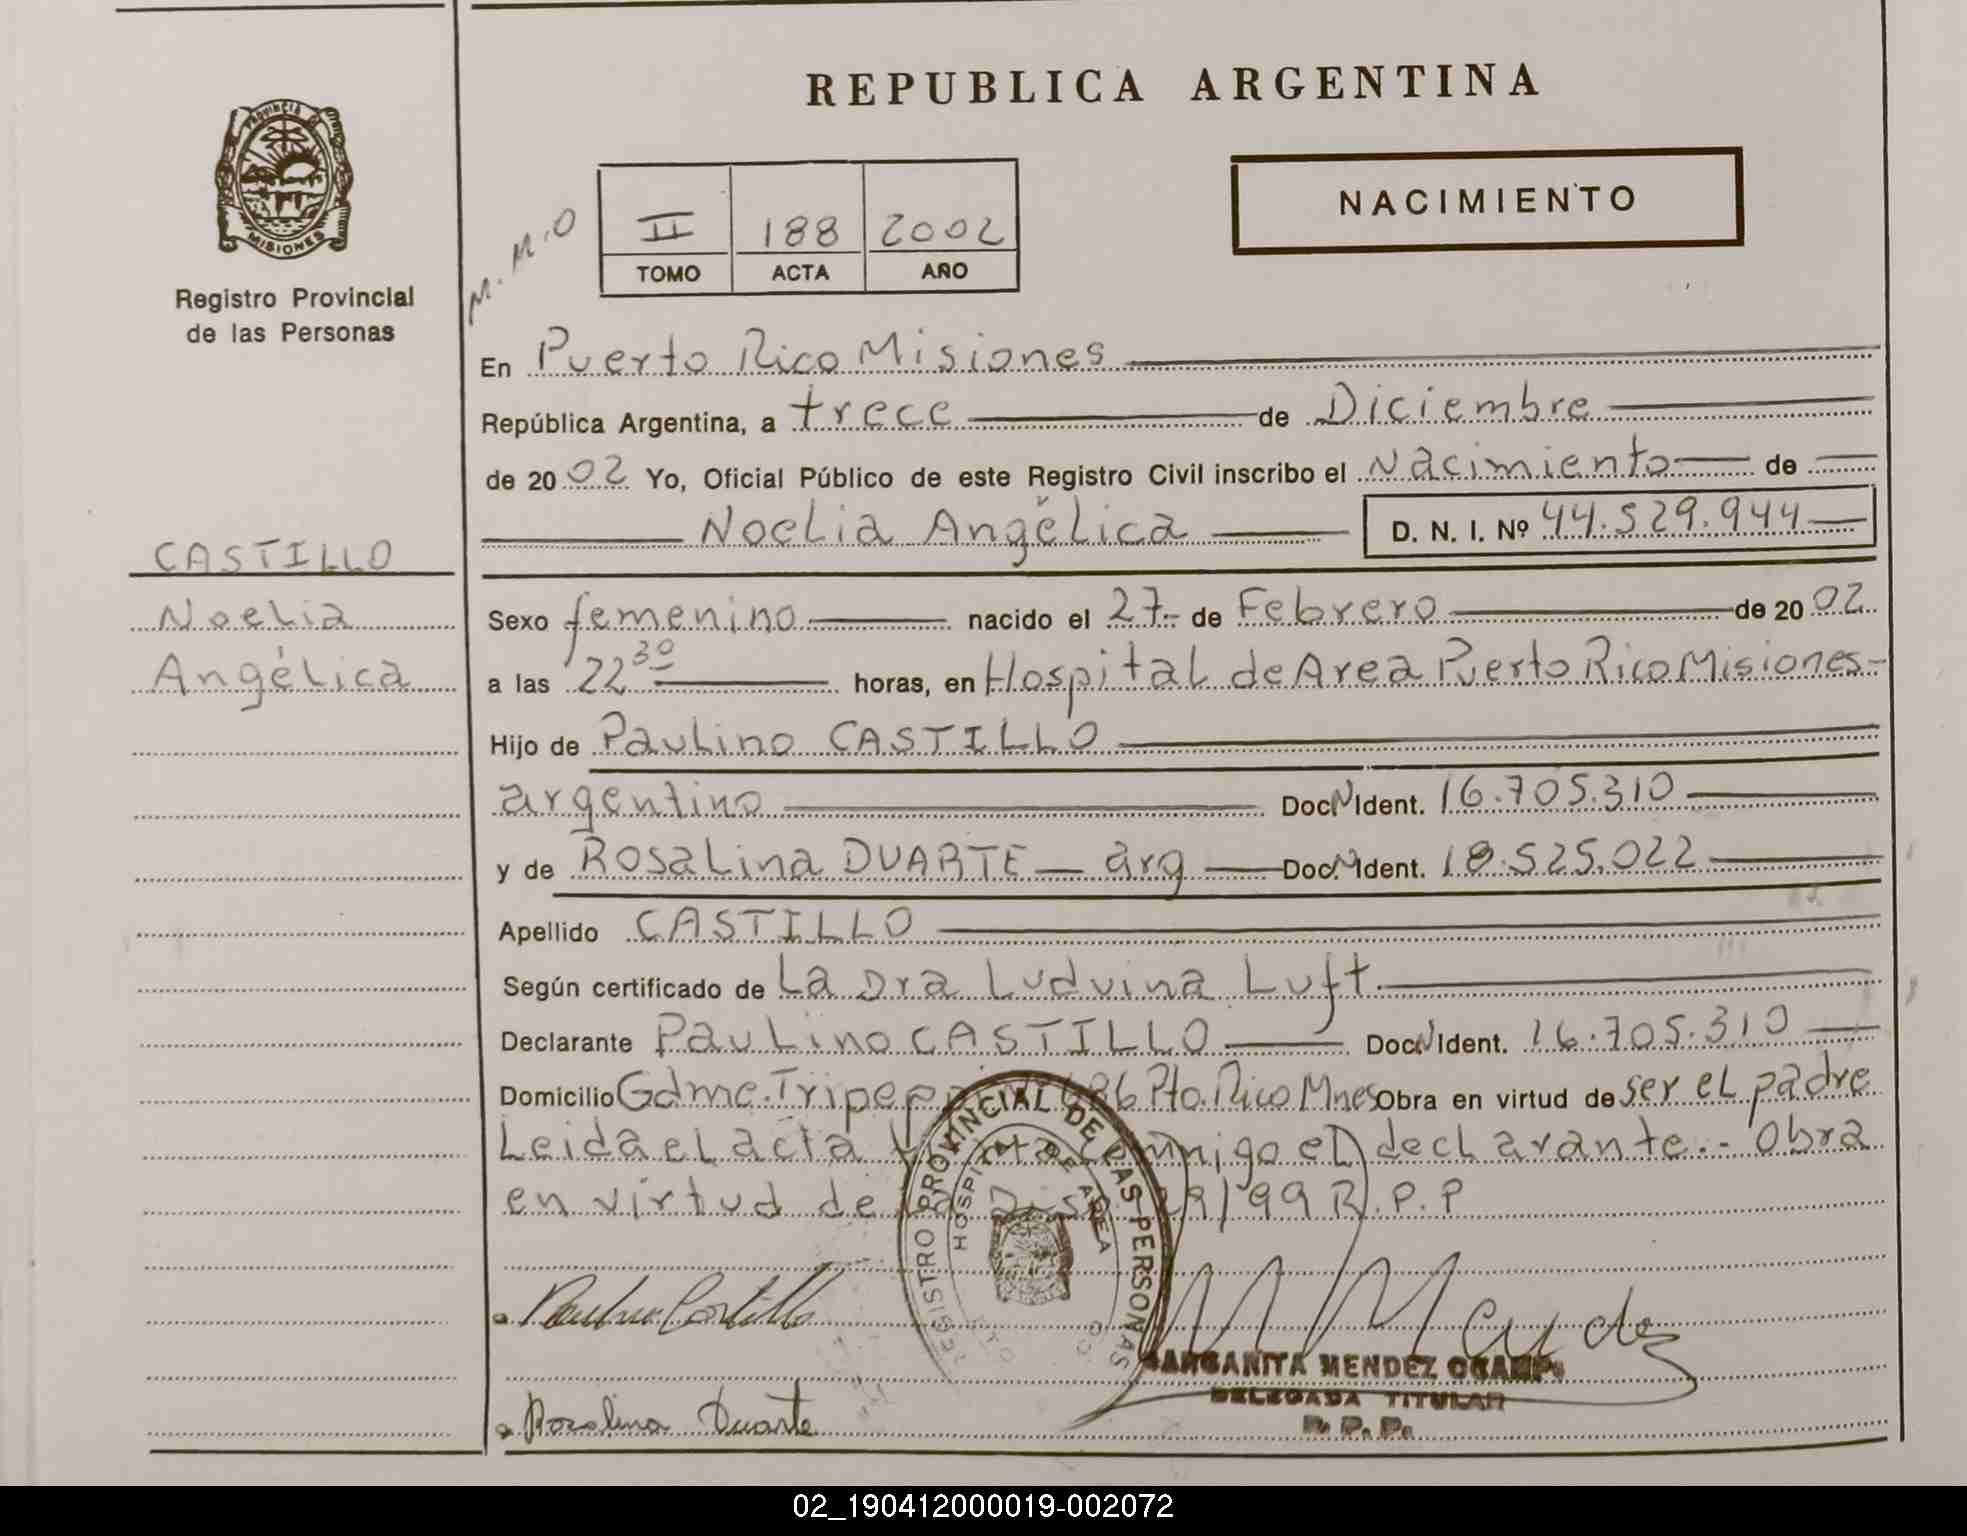 REPUBLICA ARGENTINA
PROVINCIA DE
MISIONES
Registro Provincial
de las Personas
M.M.O
II 188 2002
TOMO ACTA AÑO
NACIMIENTO
En Puerto Rico Misiones
República Argentina, a trece de Diciembre
de 2002 Yo, Oficial Público de este Registro Civil inscribo el Nacimiento de
Noelia Angélica D. N. I. Nº 44.529.944
CASTILLO
Noelia
Angélica
Sexo femenino nacido el 27 de Febrero de 2002
a las 22 30 horas, en Hospital de Area Puerto Rico Misiones-
Hijo de Paulino CASTILLO
argentino Doc. N Ident. 16.705.310
y de Rosalina DUARTE - arg Doc. N Ident. 18.525.022
Apellido CASTILLO
Según certificado de La Dra Luduina Luft.
Declarante Paulino CASTILLO Doc. N Ident. 16.705.310
Domicilio Gdmc. 486 Pto. Rico Mnes Obra en virtud de ser el padre
Leida el acta el declarante.- Obra
en virtud de la 99 R.P.P
REGISTRO PROVINCIAL DE LAS PERSONAS
HOSPITAL DE AREA
Paulino Castillo
M Mendez
MARGARITA MENDEZ OCAMPO
DELEGADA TITULAR
R. P. P.
Rosalina Duarte
02_190412000019-002072